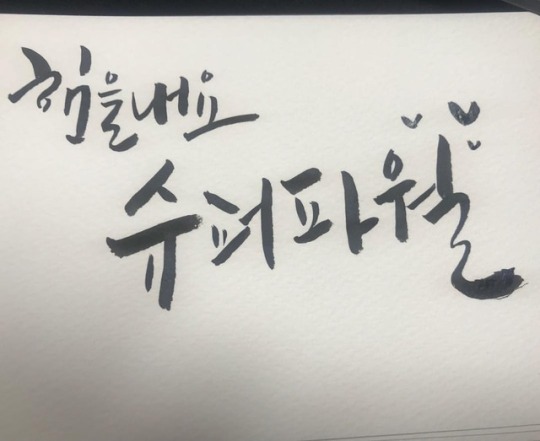 힘을내요
슈퍼파월